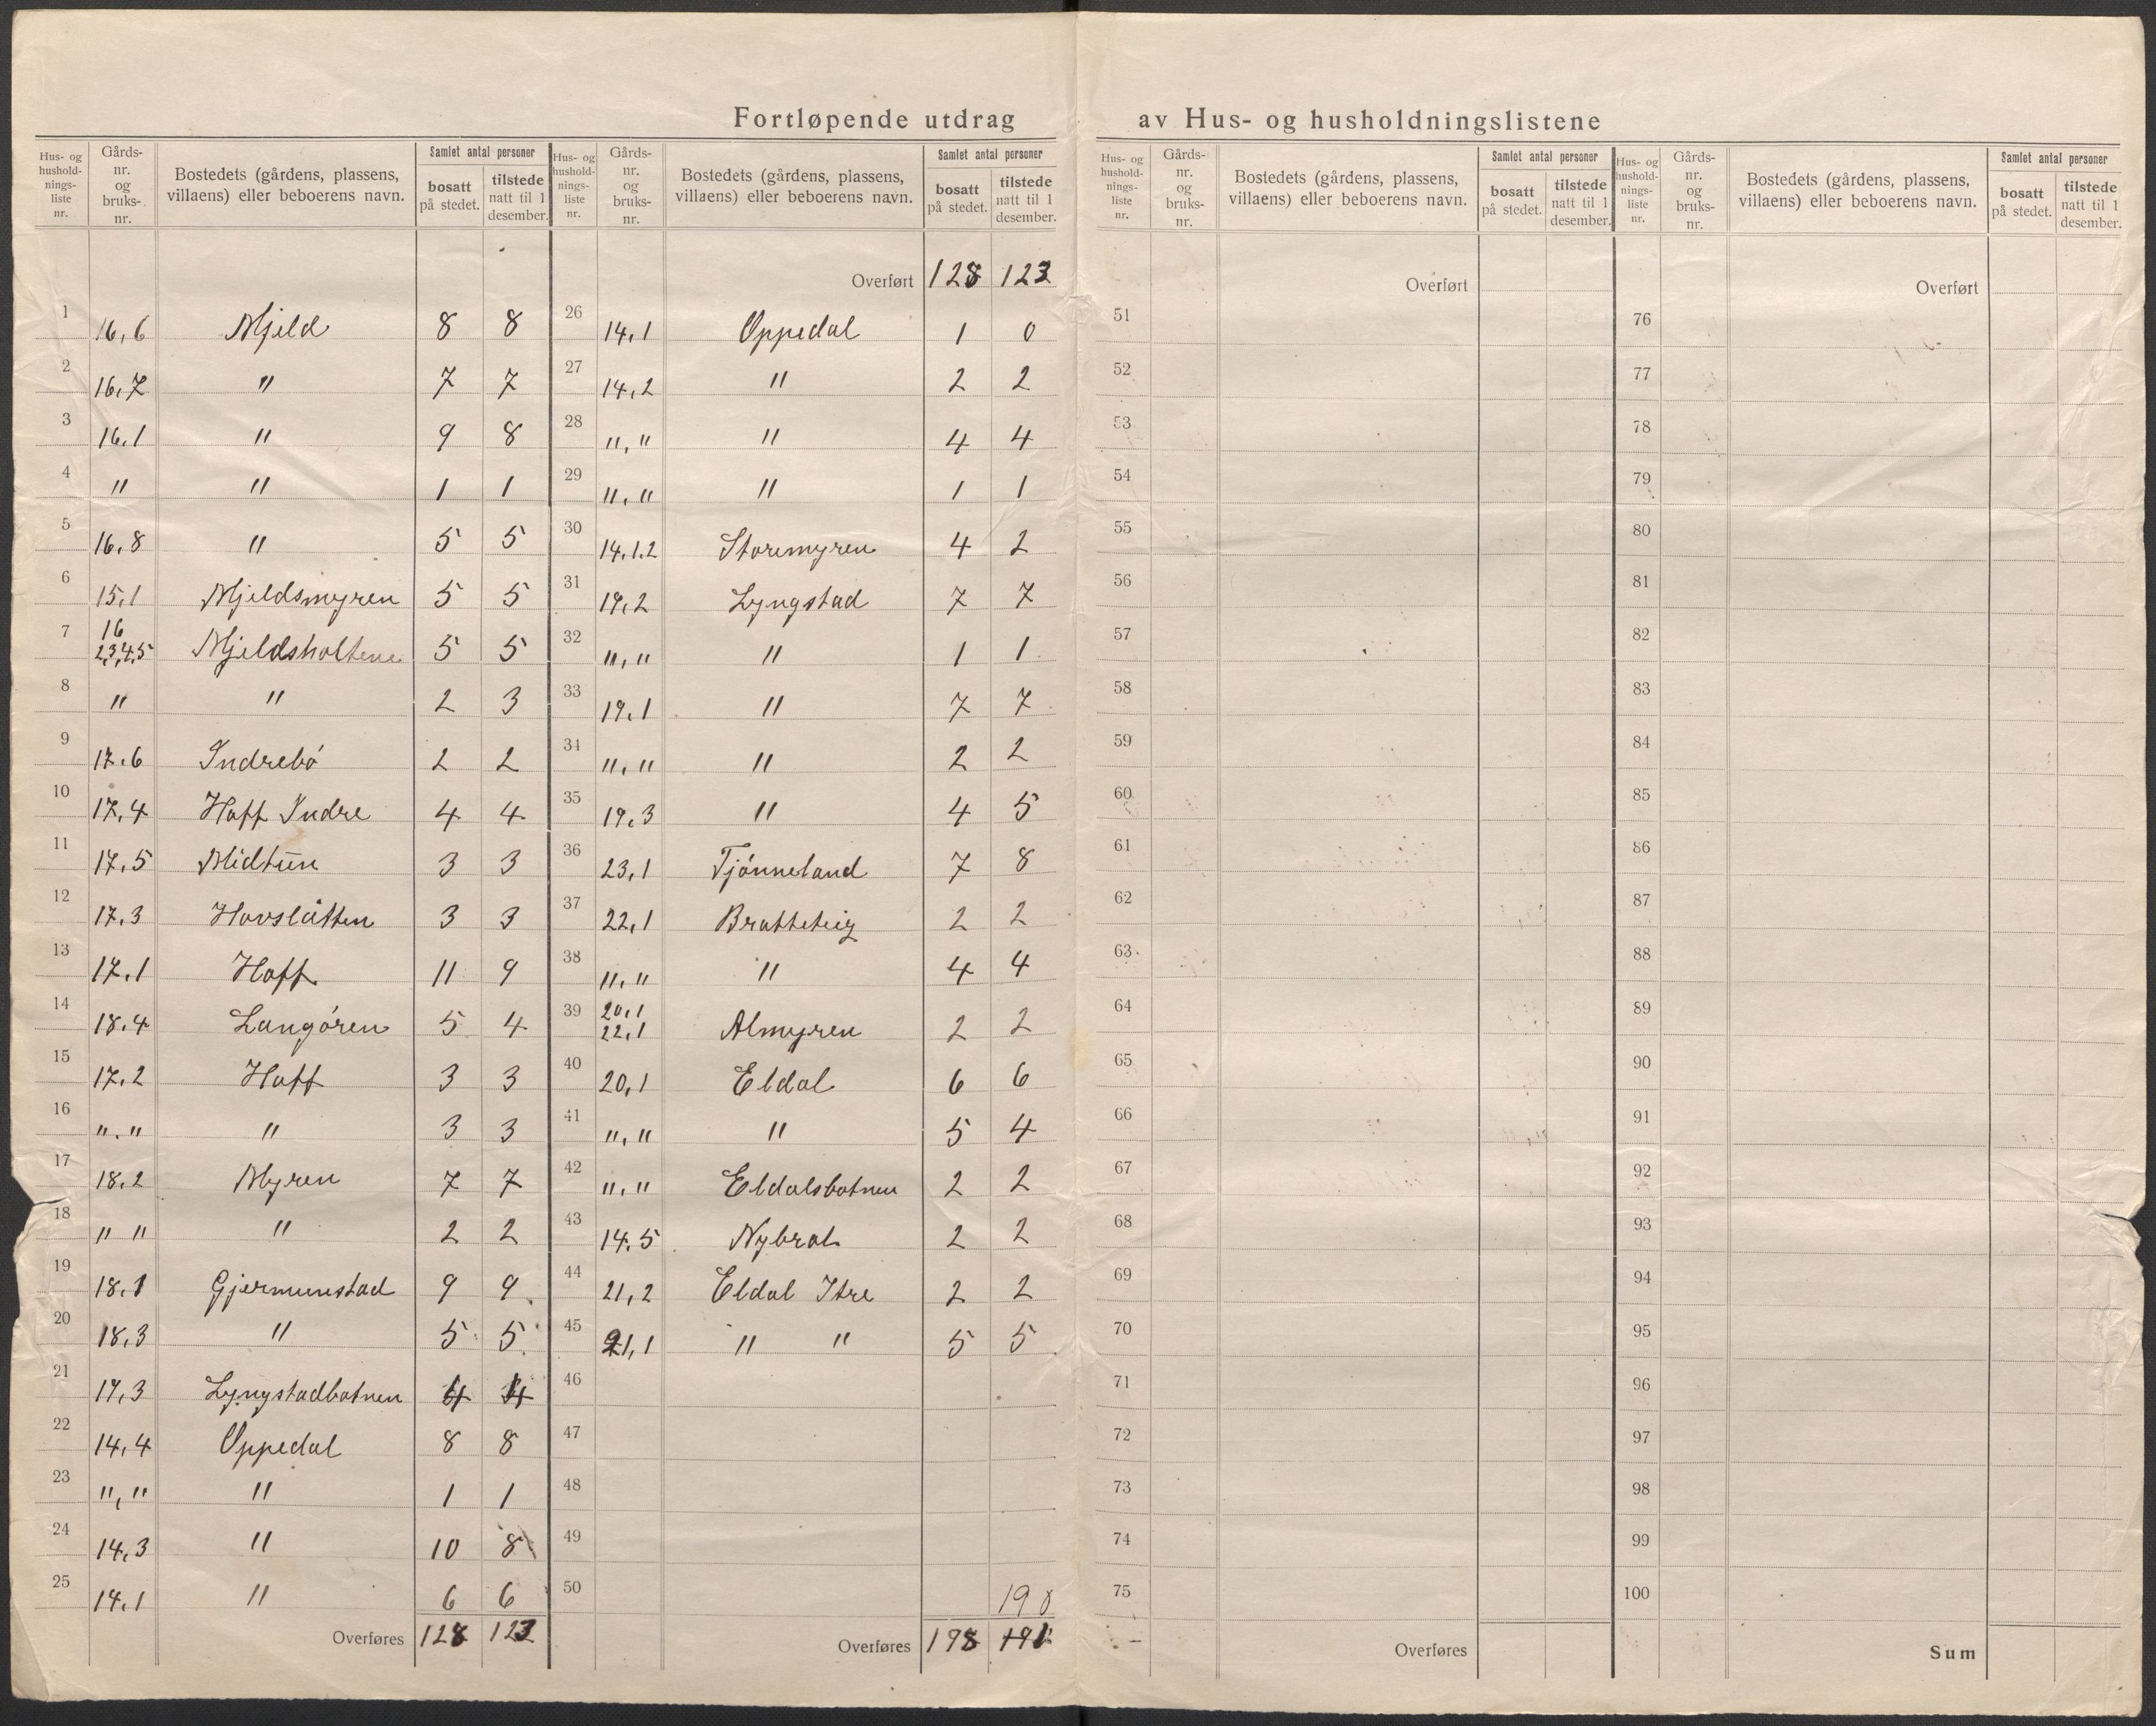 Fortløpende utdrag av Hus- og husholdningslistene
Hus- og husholdnings-liste nr. | Gårds-nr. og bruks-nr. | Bostedets (gårdens, plassens, villaens) eller beboerens navn. | Samlet antal personer | bosatt på stedet. | tilstede natt til 1 desember.
1 16,6 Mjeld 8 8
2 16,7 " 7 7
3 16,1 " 9 8
4 " " 1 1
5 16,8 " 5 5
6 15,1 Mjeldsmyren 5 5
7 16 2,3,4,5 Mjeldsholtene 5 5
8 " " 2 3
9 17,6 Indrebø 2 2
10 17,4 Hoff Indre 4 4
11 17,5 Midtun 3 3
12 17,3 Hovslåtten 3 3
13 17,1 Hoff 11 9
14 18,4 Langøren 5 4
15 17,2 Hoff 3 3
16 ",," " 3 3
17 18,2 Myren 7 7
18 " " " 2 2
19 18,1 Gjermunstad 9 9
20 18,3 " 5 5
21 19,3 Lyngstadbotnen 4 4
22 14,4 Oppedal 8 8
23 "," " 1 1
24 14,3 " 10 8
25 14,1 " 6 6
Overføres 128 123
Hus- og husholdnings-liste nr. | Gårds-nr. og bruks-nr. | Bostedets (gårdens, plassens, villaens) eller beboerens navn. | Samlet antal personer | bosatt på stedet. | tilstede natt til 1 desember.
Overført 128 123
26 14,1 Oppedal 1 0
27 14,2 " 2 2
28 "," " 4 4
29 "," " 1 1
30 14,1.2 Storemyren 4 2
31 19,2 Lyngstad 7 7
32 "," " 1 1
33 19,1 " 7 7
34 "," " 2 2
35 19,3 " 4 5
36 23,1 Tjønneland 7 8
37 22,1 Bratteteig 2 2
38 "," " 4 4
39 20,1 22,1 Almyren 2 2
40 20,1 Eldal 6 6
41 "," " 5 4
42 "," Eldalsbotnen 2 2
43 14,5 Nybrot 2 2
44 21,2 Eldal Itre 2 2
45 21,1 " " 5 5
46
47
48
49
50 190
Overføres 198 191
Hus- og husholdnings-liste nr. | Gårds-nr. og bruks-nr. | Bostedets (gårdens, plassens, villaens) eller beboerens navn. | Samlet antal personer | bosatt på stedet. | tilstede natt til 1 desember.
Overført
51
52
53
54
55
56
57
58
59
60
61
62
63
64
65
66
67
68
69
70
71
72
73
74
75
Overføres
Hus- og husholdnings-liste nr. | Gårds-nr. og bruks-nr. | Bostedets (gårdens, plassens, villaens) eller beboerens navn. | Samlet antal personer | bosatt på stedet. | tilstede natt til 1 desember.
Overført
76
77
78
79
80
81
82
83
84
85
86
87
88
89
90
91
92
93
94
95
96
97
98
99
100
Sum